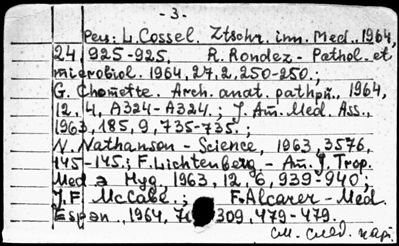 - 3.
Рец: L. Cossel. Ztschr. inn. Med., 1964,
24, 925-925. R. Rondez - Pathol. et
microbiol. 1964, 27, 2, 250-250.;
G. Chomette. Arch. anat. path., 1964,
12, 4, A324-A324.; J. Am. Med. Ass.,
1963, 185, 9, 735-735.;
N. Nathanson - Science, 1963, 3576,
145-145.; F. Lichtenberg - Am. J. Trop.
Med a Hyg, 1963, 12, 6, 939-940;
J. F. McCabe.; F. Alcarer - Med.
Espan., 1964, 309, 479-479.
См. след. карт.